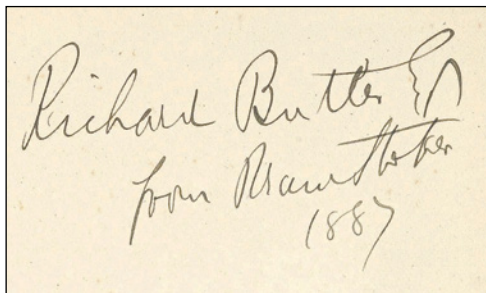 Richard Butler Esq
from Bram Stoker
1887